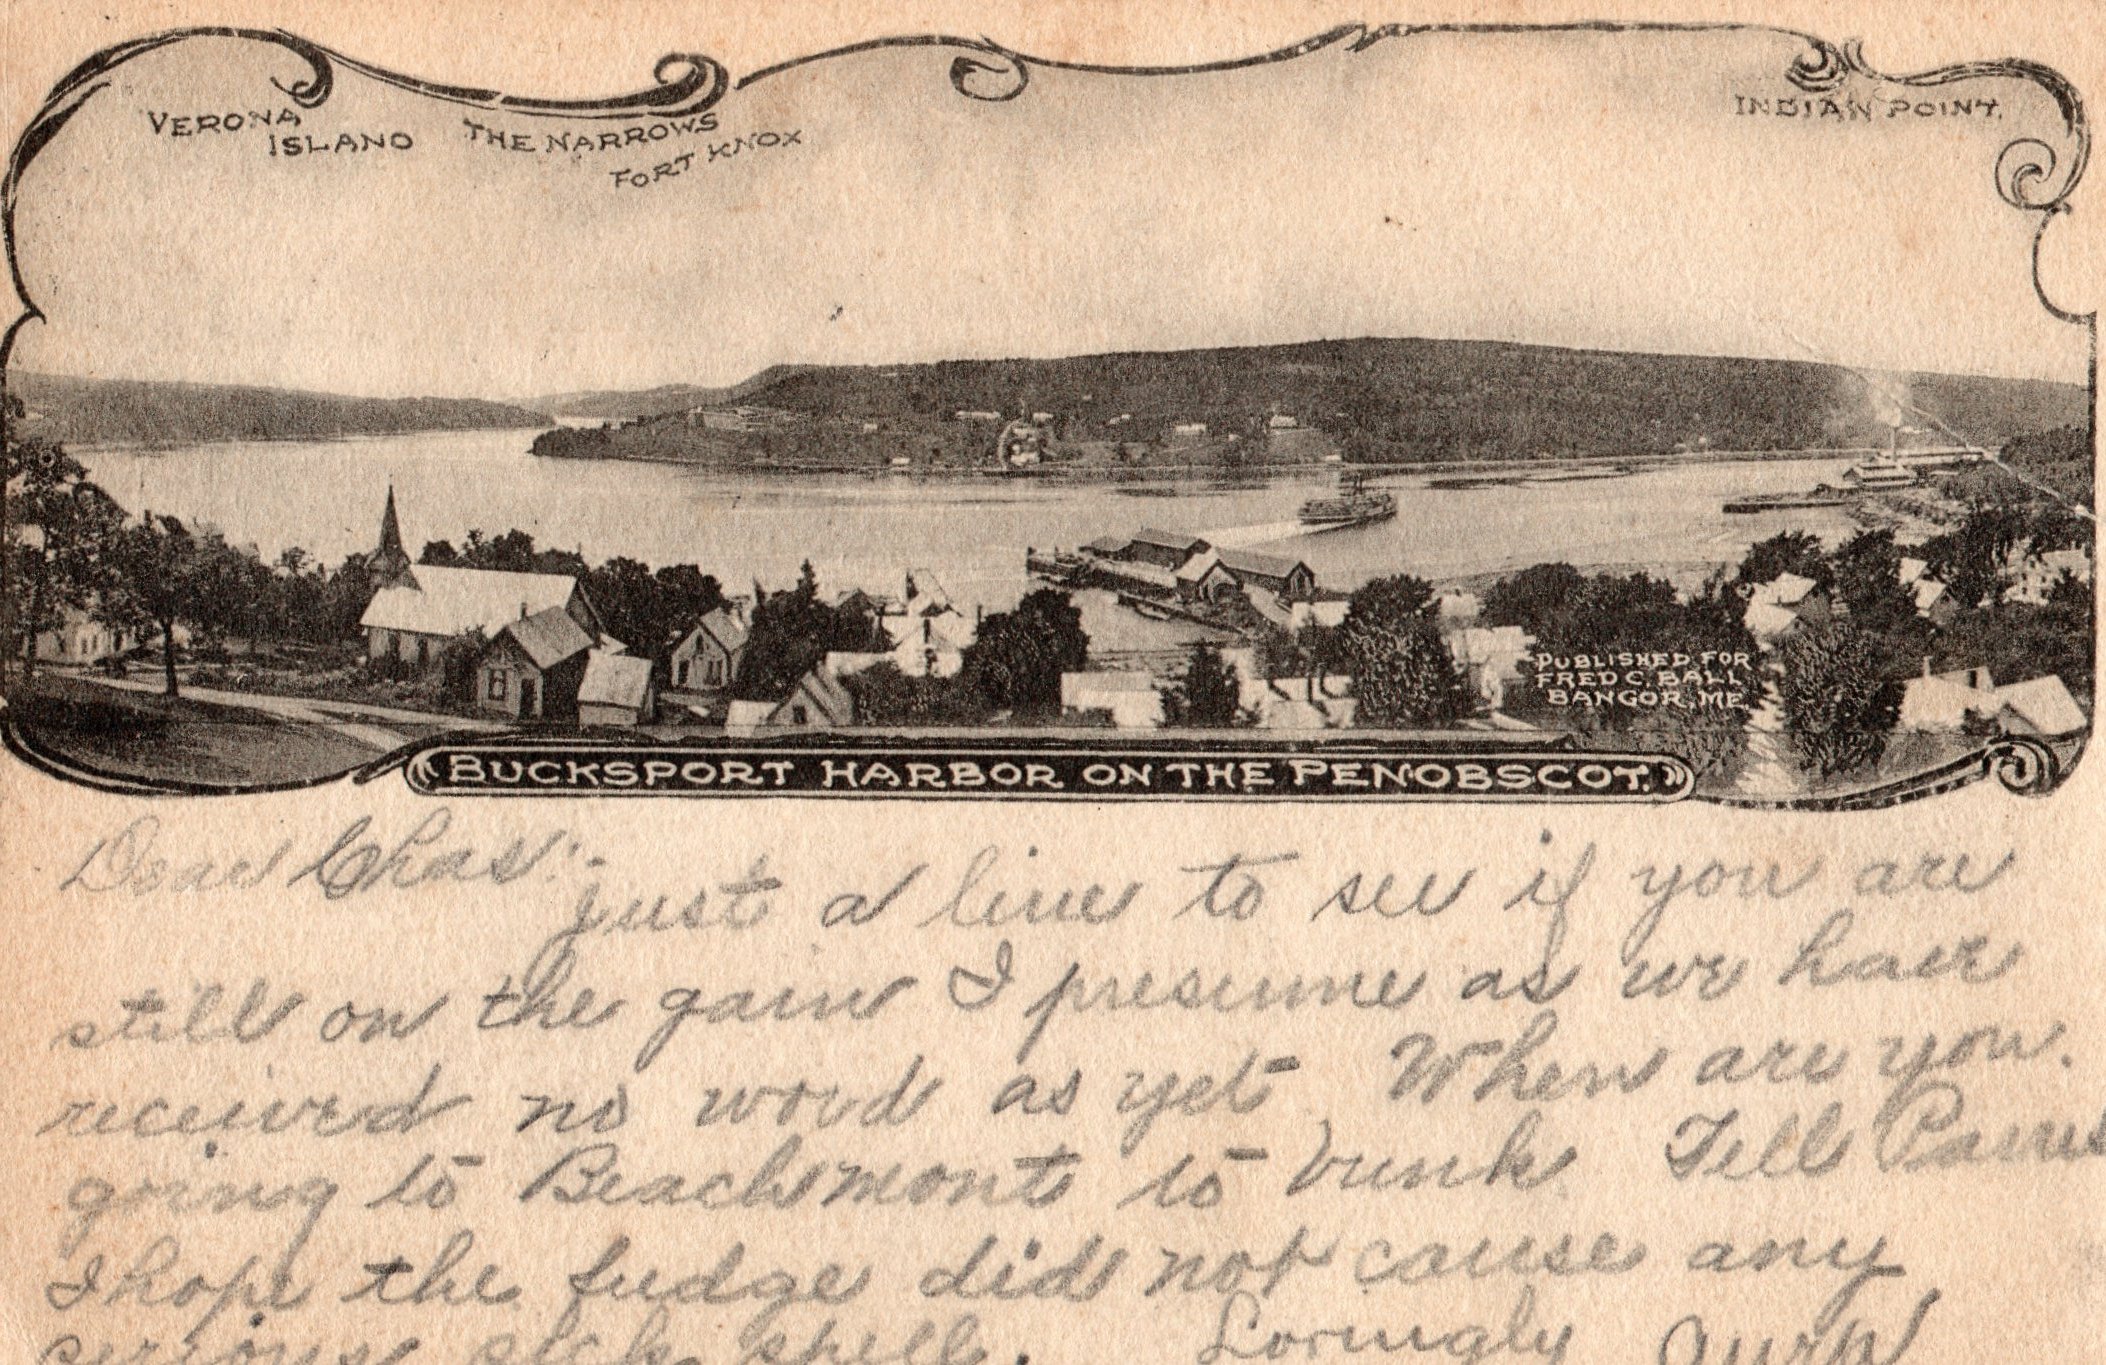 VERONA
ISLAND
THE NARROWS
FORT KNOX
INDIAN POINT.
PUBLISHED FOR
FRED C. BALL
BANGOR, ME.
BUCKSPORT HARBOR ON THE PENOBSCOT.
Dear Chas:-
just a line to see if you are
still on the gain I presume as we have
received no word as yet. When are you
going to Beachmont to Tell
I hope the fudge did not cause any
serious sick spell. Lovingly